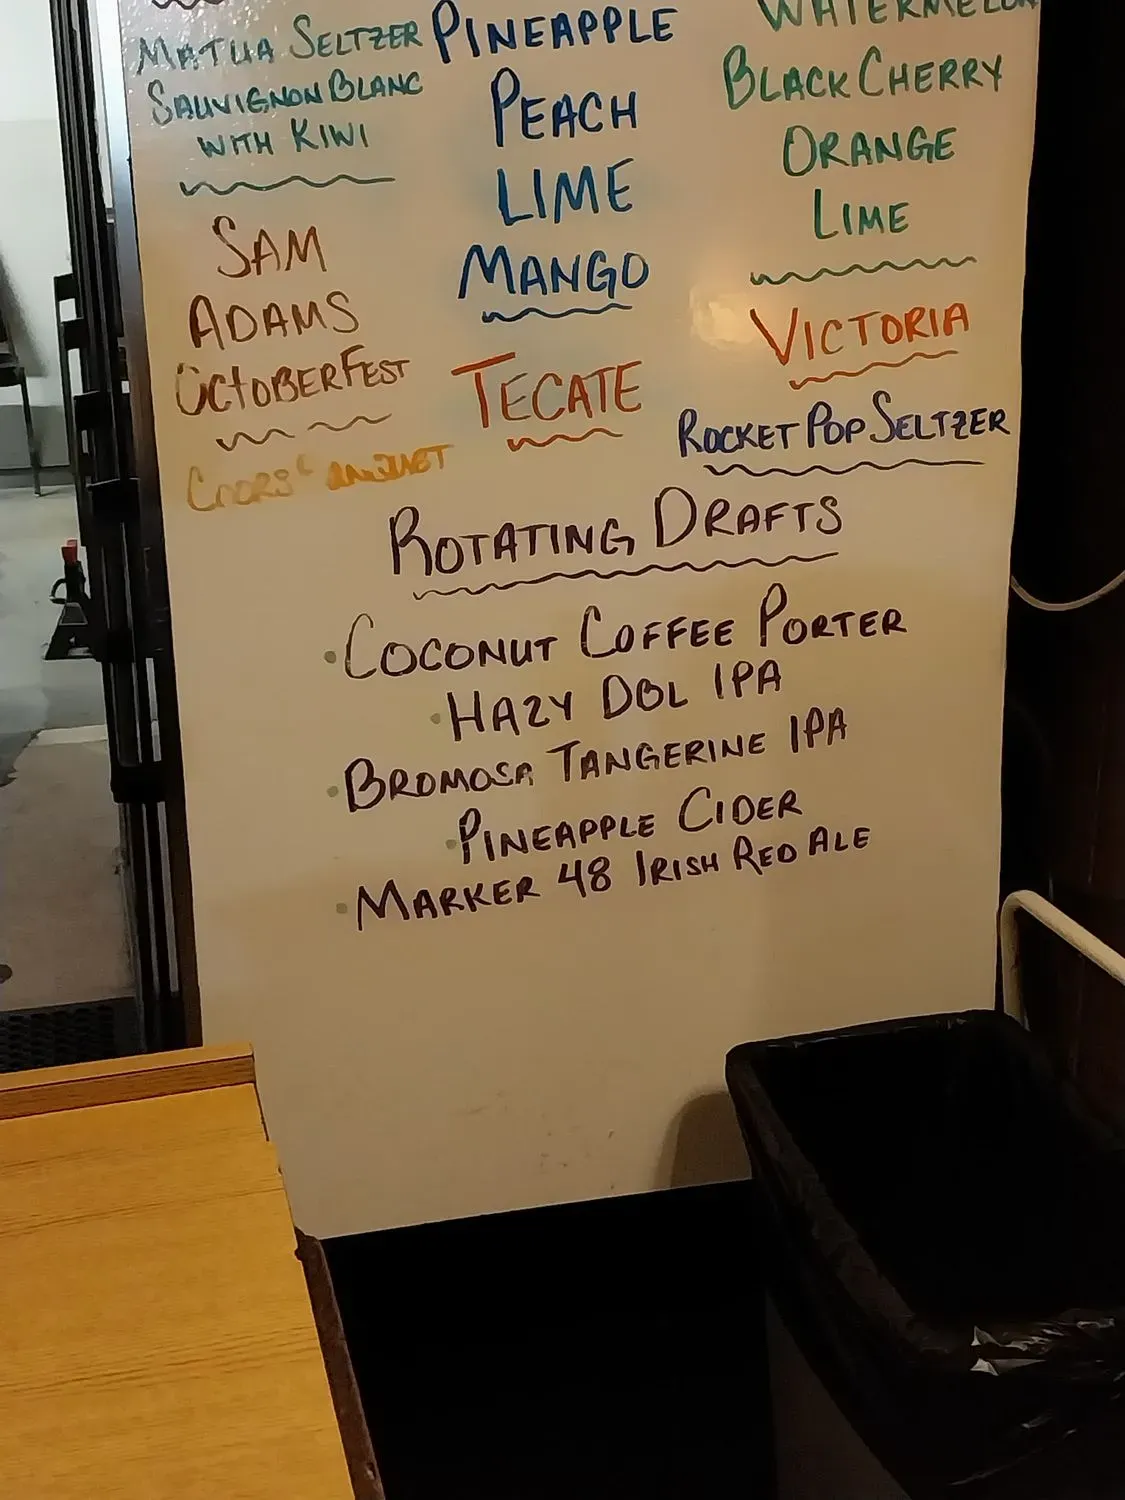 MATUA SELTZER
SAUVIGNON BLANC
WITH KIWI
SAM
ADAMS
OCTOBERFEST
COORS BANQUET
PINEAPPLE
PEACH
LIME
MANGO
TECATE
WATERMELON
BLACK CHERRY
ORANGE
LIME
VICTORIA
ROCKET POP SELTZER
ROTATING DRAFTS
• COCONUT COFFEE PORTER
• HAZY DBL IPA
• BROMOSA TANGERINE IPA
• PINEAPPLE CIDER
• MARKER 48 IRISH RED ALE